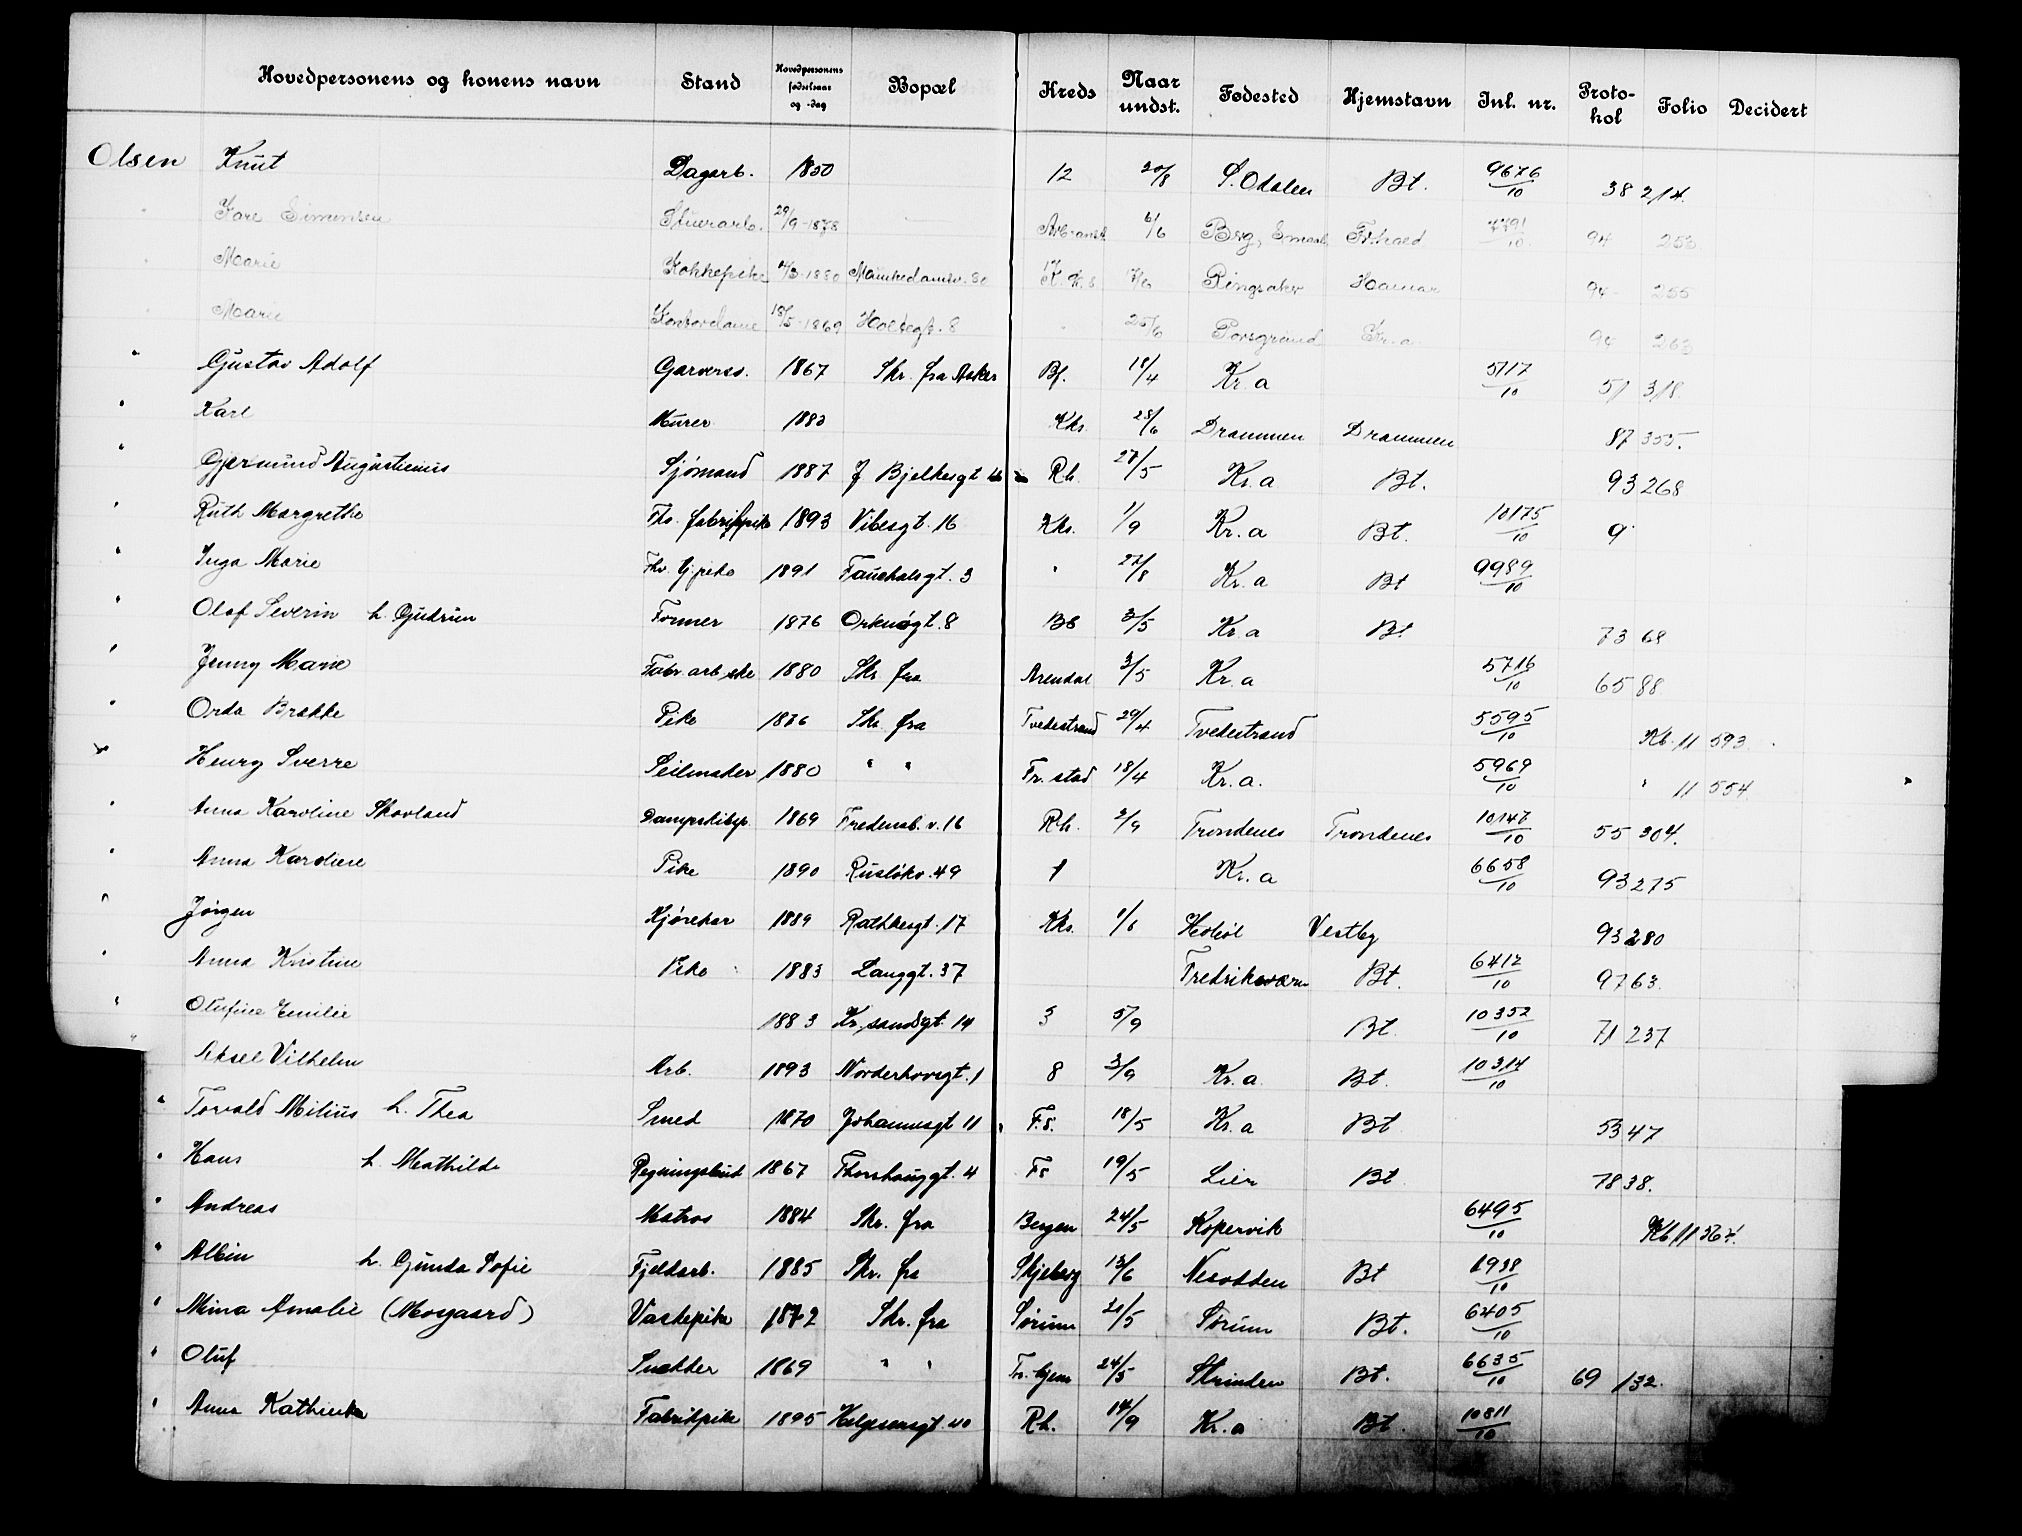 Hovedpersonens og konens navn Stand Hovedpersonens fødselsaar og -dag Bopæl Kreds Naar undst. Fødested Hjemstavn Inl. nr. Protokol Folio Decidert
Olsen Knut Dagarb. 1850 12 20/8 S. Odalen Bt. 9676/10 38 214.
" Kare Simonsen 29/9-1878 6/6 7791/10 94 253
" Marie Kokkepike 1880 Munkedamsv. 80 Ringsaker Hamar 94 255
" Marie Kontordame 18/5-1869 Holtegt. 8 " 25/6 Porsgrund Kr.a 94 263
" Gustav Adolf Garversv. 1867 Skr. fra Asker Bf. 18/4 Kr.a 5117/10 51 318.
" Karl Murer 1883 Kks 28/6 Drammen Drammen 87 355.
" Gjermund Augustinius Sjømand 1887 J Bjelkesgt Rh. 27/5 Kr.a Bt. 93 268
" Ruth Margrethe Fhv. fabrikpike 1893 Vibesgt. 16 Kks. 1/9 Kr.a Bt. 10175/10 9
" Inga Marie 1891 Fauchalsgt. 3 " 27/8 Kr.a Bt 9989/10
" Olaf Severin h. Gudrun Former 1876 Orknøgt. 8 3/5 Kr.a Bt 73 68
" Jenny Marie Fabr. arb.ske 1880 Skr fra Arendal 3/5 Kr.a 5716/10 65 88
" Orda Brekke Pike 1876 Skr. fra Tvedestrand 29/4 Tvedestrand 5595/10 Kb. 11 593.
" Henry Sverre Seilmaker 1880 " " Fr. stad 18/4 Kr.a. 5969/10 " 11 554
" Anna Karoline Skovland Dampskibsp. 1869 Fredensb. v. 16 Rh. 2/9 Trondenes Trondenes 10147/10 55 304.
" Anna Karoline Pike 1890 Rusløkv. 49 1 Kr.a 6658/10 93 275
" Jørgen Kjørekar 1889 Rathkesgt. 17 Kks. 1/6 Hobøl Vestby 93 280
" Anna Kristine Pike 1883 Langgt. 37 Fredriksværn Bt. 6412/10 97 63.
" Olufine Emilie 1883 Kr.sandsgt. 14 3 5/9 Bt. 10352/10 71 237
" Aksel Vilhelm Arb. 1893 Norderhovsgt. 1 8 3/9 Kr.a Bt. 10314/10
" Torvald Milius h. Thea Smed 1870 Johannesgt 11 F.S. 18/5 Kr.a Bt 53 47
" Hans h. Mathilde Regningsbud 1867 Thorshauggt. 4 Fs 19/5 Lier Bt 78 38.
" Andreas Matros 1884 Skr. fra Bergen 24/5 Kopervik 6495/10 Kb 11 364.
" Albin h. Gunda Sofie Fjeldarb. 1885 Skr. fra Skjeberg 13/6 Nesodden Bt 1938/10
" Mina Amalie (Mosgaard) Vaskepike 1872 Skr. fra Sørum 21/5 Sørum Bt. 6405/10
" Oluf Snekker 1869 " " Tr. hjem 24/5 Strinden Bt. 6635/10 69 132.
" Anna Kathinka Fabrikpike 1895 Helgesensgt. 40 Rh. 14/9 Kr.a Bt. 10811/10